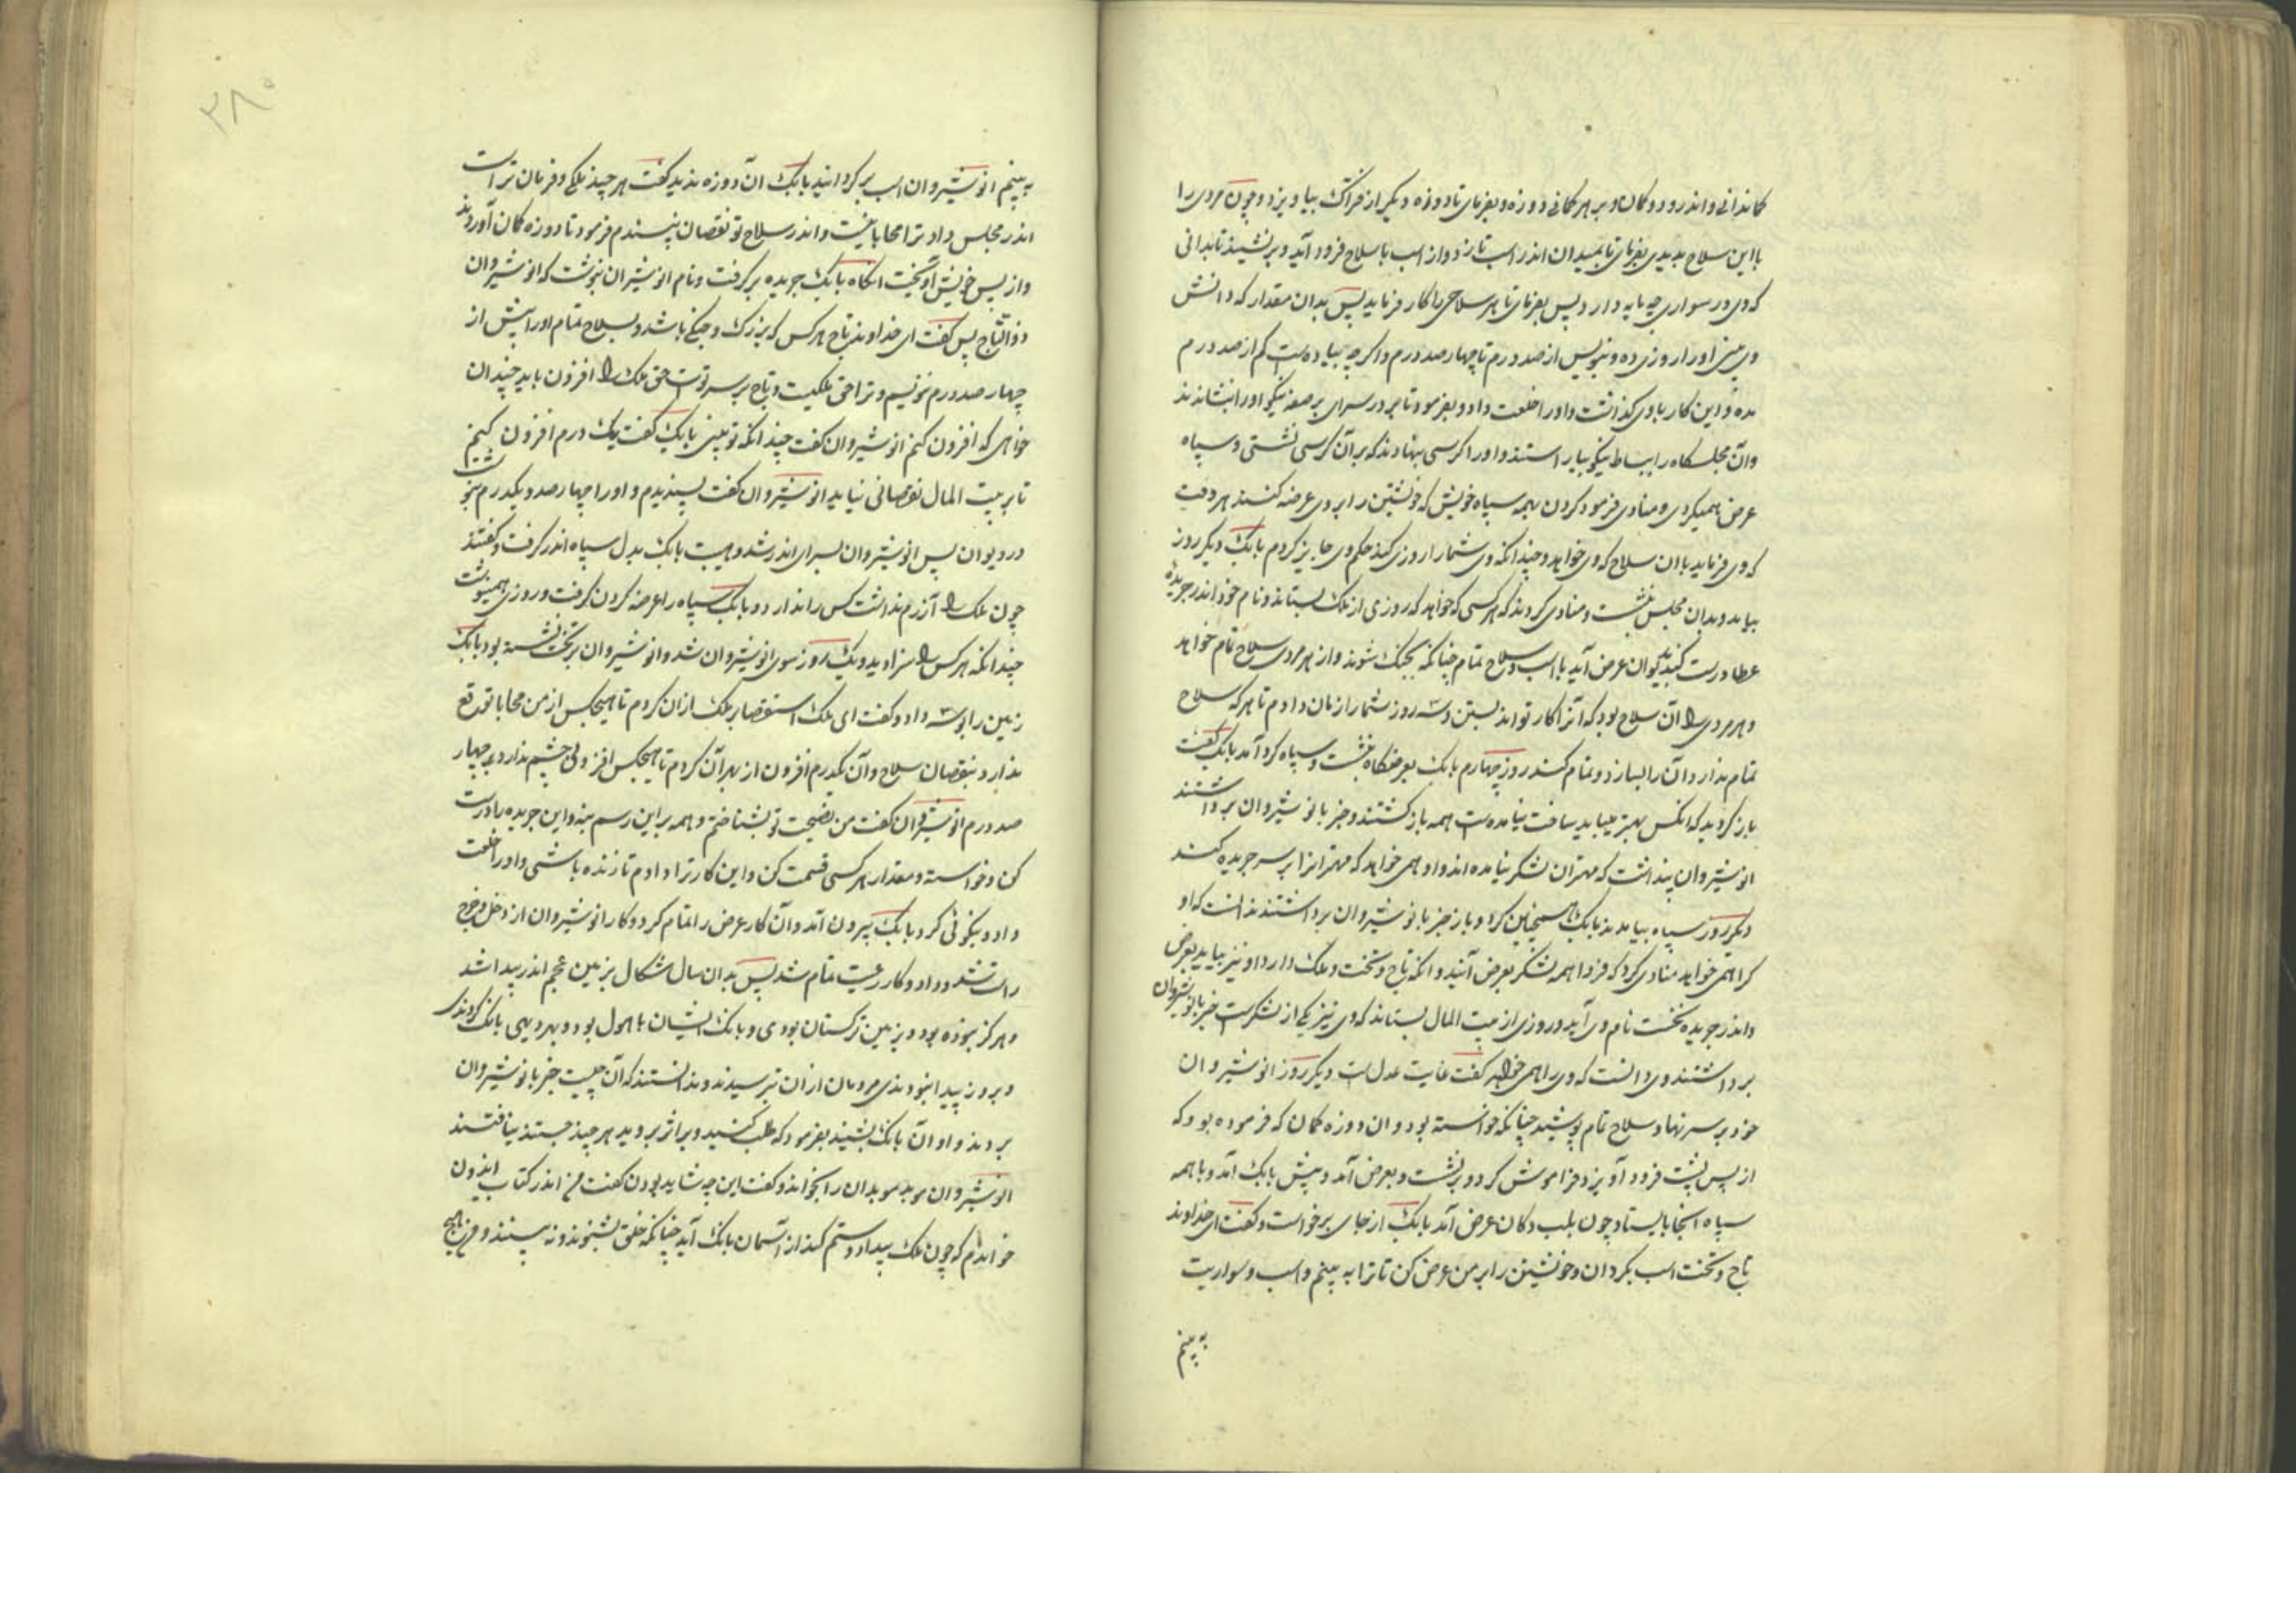 کماندانی و اندر و دو کمان و بر هر کمانی دو زه و بفرمای تا دو زه دیگر از فتراک بیاویزد و چون مردی را
با این سلاح بدیدی بفرمای تا بمیدان اندر اسب تازد و از اسب با سلاح فرود آید و برنشیند تا بدانی
که وی در سواری چه مایه دارد پس بفرمای تا هر سلاحی را کار فرماید پس بدان مقدار که دانش
وی بینی او را روزی ده و بنویس از صد درم تا چهار صد درم و اگر چه پیاده است کم از صد درم
مده و این کار با وی گذاشت و او را خلعت داد و بفرمود تا بر در سرای بر صفه نیکو او را بنشاندند
و آن مجلسگاه را ببساط نیکو بیاراستند و او را کرسی بنهادند که بر آن کرسی نشستی و سپاه
عرض همیکردی و منادی فرمود کردن بهمه سپاه خویش که خویشتن را بر وی عرضه کنند هر وقت
که وی فرماید با ان سلاح که وی خواهد و چندانکه وی شما را روزی کند حکم وی جایز کردم بابک دیگر روز
بیامد و بدان مجلس بنشست و منادی کردند که هر کسی که خواهد که روزی از ملک بستاند و نام خود اندر جریده
عطا درست کند بدیوان عرض آید با اسب و سلاح تمام چنانکه بجنگ شوند و از هر مردی سلاح تمام خواهد
و هر مردی را آن سلاح بود که آنرا کار تواند بستن و سه روز شما را زمان دادم تا هر که سلاح
تمام ندارد آن را بسازد و تمام کند روز چهارم بابک بعرضگاه بنشست و سپاه گرد آمد بابک گفت
باز گردید که انکس بهتر میباید ساخت نیامده است همه باز گشتند و خبر بانوشیروان برداشتند
انوشیروان پنداشت که مهتران لشکر نیامده اند و او همی خواهد که مهترانرا بر سر جریده کند
دیگر روز سپاه بیامدند بابک همچنین کرد و باز خبر بانوشیروان برداشتند ندانست که او
کرا همی خواهد منادی کرد که فردا همه لشکر بعرض آیند و انکه تاج و تخت و ملک دارد او نیز بیاید بعرض
و اندر جریده نخست نام وی آید و روزی از بیت المال بستاند که وی نیز یکی از لشکرست خبر بانوشیروان
برداشتند وی دانست که وی را همی خواهد گفت غایت عدل است دیگر روز انوشیروان
خود بر سر نهاد و سلاح تمام بپوشید چنانکه خواسته بود و ان دو زه کمان که فرموده بود که
از پس پشت فرود آویزد فراموش کرد و برنشست و بعرض آمد و پیش بابک آمد و با همه
سپاه انجا بایستاد چون بلب دکان عرض آمد بابک از جای برخواست و گفت ای خداوند
تاج و تخت اسب بگردان و خویشتن را بر من عرض کن تا ترا به بینم و اسب و سواریت
به بینم
۲۸۰
به بینم انوشیروان اسب برگردانید بابک ان دو زه ندید گفت هر چند ملکی و فرمان تراست
اندر مجلس داد ترا محابا نیست و اندر سلاح تو نقصان پسندم فرمود تا دو زه کمان آوردند
و از پس خویش آویخت انگاه بابک جریده برگرفت و نام انوشیران بنوشت که انوشیروان
ذوالتاج پس گفت ای خداوند تاج هر کس که بزرگ و جنگی باشد و بسلاح تمام او را بیش از
چهار صد درم ننویسم و ترا حق ملکیت و تاج بر سر توست حق ملک را افزون باید چندان
خواهی که افزون کنم انوشیروان گفت چندانکه تو بینی بابک گفت یک درم افزون کنیم
تا بر بیت المال نقصانی نیاید انوشیروان گفت پسندیدم و او را چهار صد و یکدرم بنوشت
در دیوان پس انوشیروان بسرای اندر شد و هیبت بابک بدل سپاه اندر گرفت و گفتند
چون ملک را آزرم نداشت کس را ندارد و بابک سپاه را عرضه کردن گرفت و روزی همینوشت
چندانکه هر کس را سزا دید و یک روز سوی انوشیروان شد و انوشیروان بر تخت نشسته بود بابک
زمین را بوسه داد و گفت ای ملک استقصا بر ملک از ان کردم تا هیچکس از من محابا توقع
ندارد بنقصان سلاح و آن یکدرم افزون از بهر آن کردم تا هیچکس افزونی چشم ندارد بر چهار
صد درم انوشیروان گفت من نصیحت تو بشناختم و همه بر این رسم بنه و این جریده را درست
کن و خواسته و مقدار هر کسی قسمت کن و این کار ترا دادم تا زنده باشی و او را خلعت
داد و نیکوئی کرد بابک بیرون آمد و آن کار عرض را تمام کرد و کار انوشیروان از دخل و خرج
راست شد و داد و کار رعیت تمام شد پس بدان سال شکال بزمین عجم اندر پیدا شد
و هرگز نبوده بود و بزمین ترکستان بودی و بانک ایشان با هول بود و بهر دیهی بانگ کردندی
و بروز پیدا نبودندی مردمان از ان بترسیدند و ندانستند که آن چیست خبر بانوشیروان
بردند و او آن بانک بشنید بفرمود که طلب کنید و بر اثر بروید هر چند جستند نیافتند
انوشیروان موبد موبدان را بخواند و گفت این چه شاید بودن گفت من اندر کتاب ایدون
خوانده ام که چون ملک بیداد و ستم کند از آسمان بانگ آید چنانکه خلق بشنوند و نبینند و من هیچ